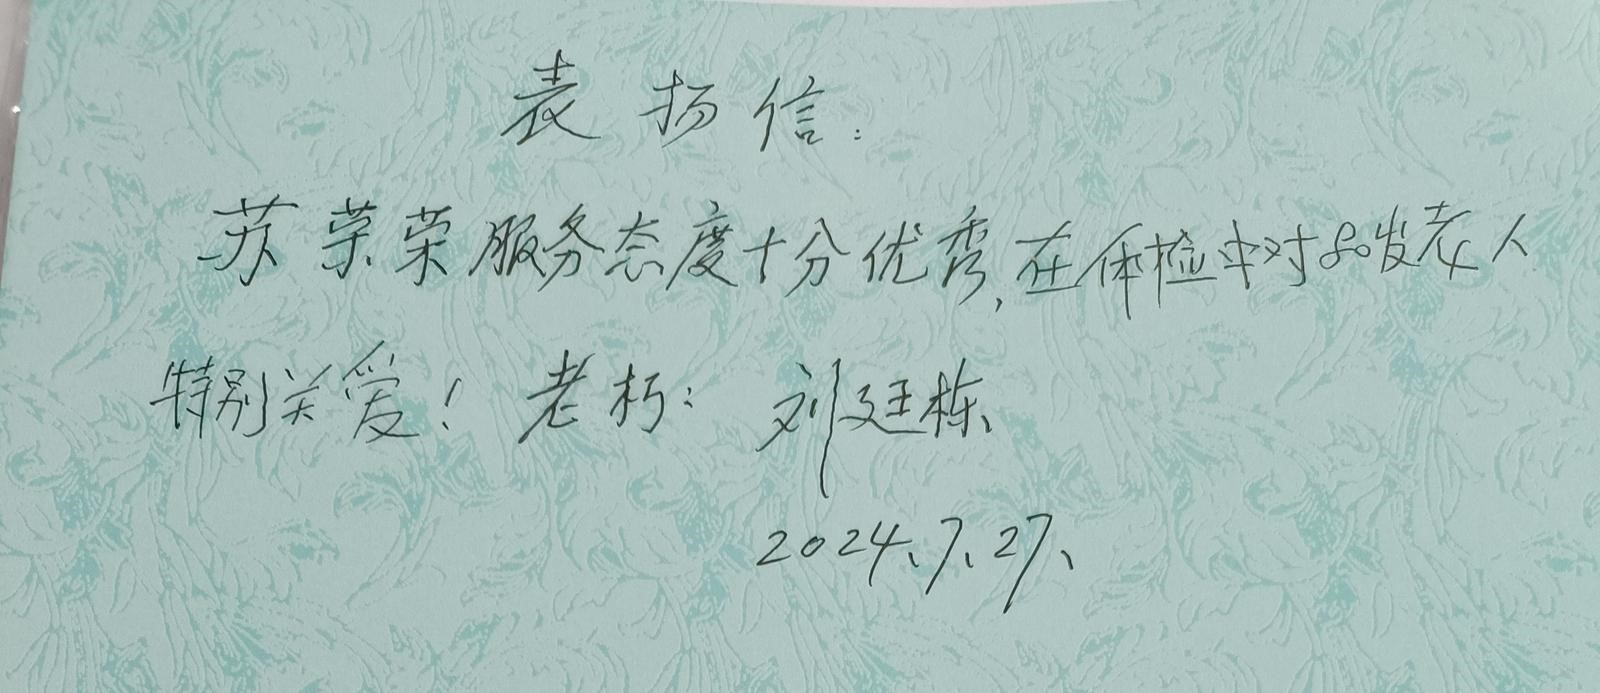 表扬信:
苏荣荣服务态度十分优秀,在体检中对老人
特别关爱! 老朽: 刘廷栋、
2024、7、27、